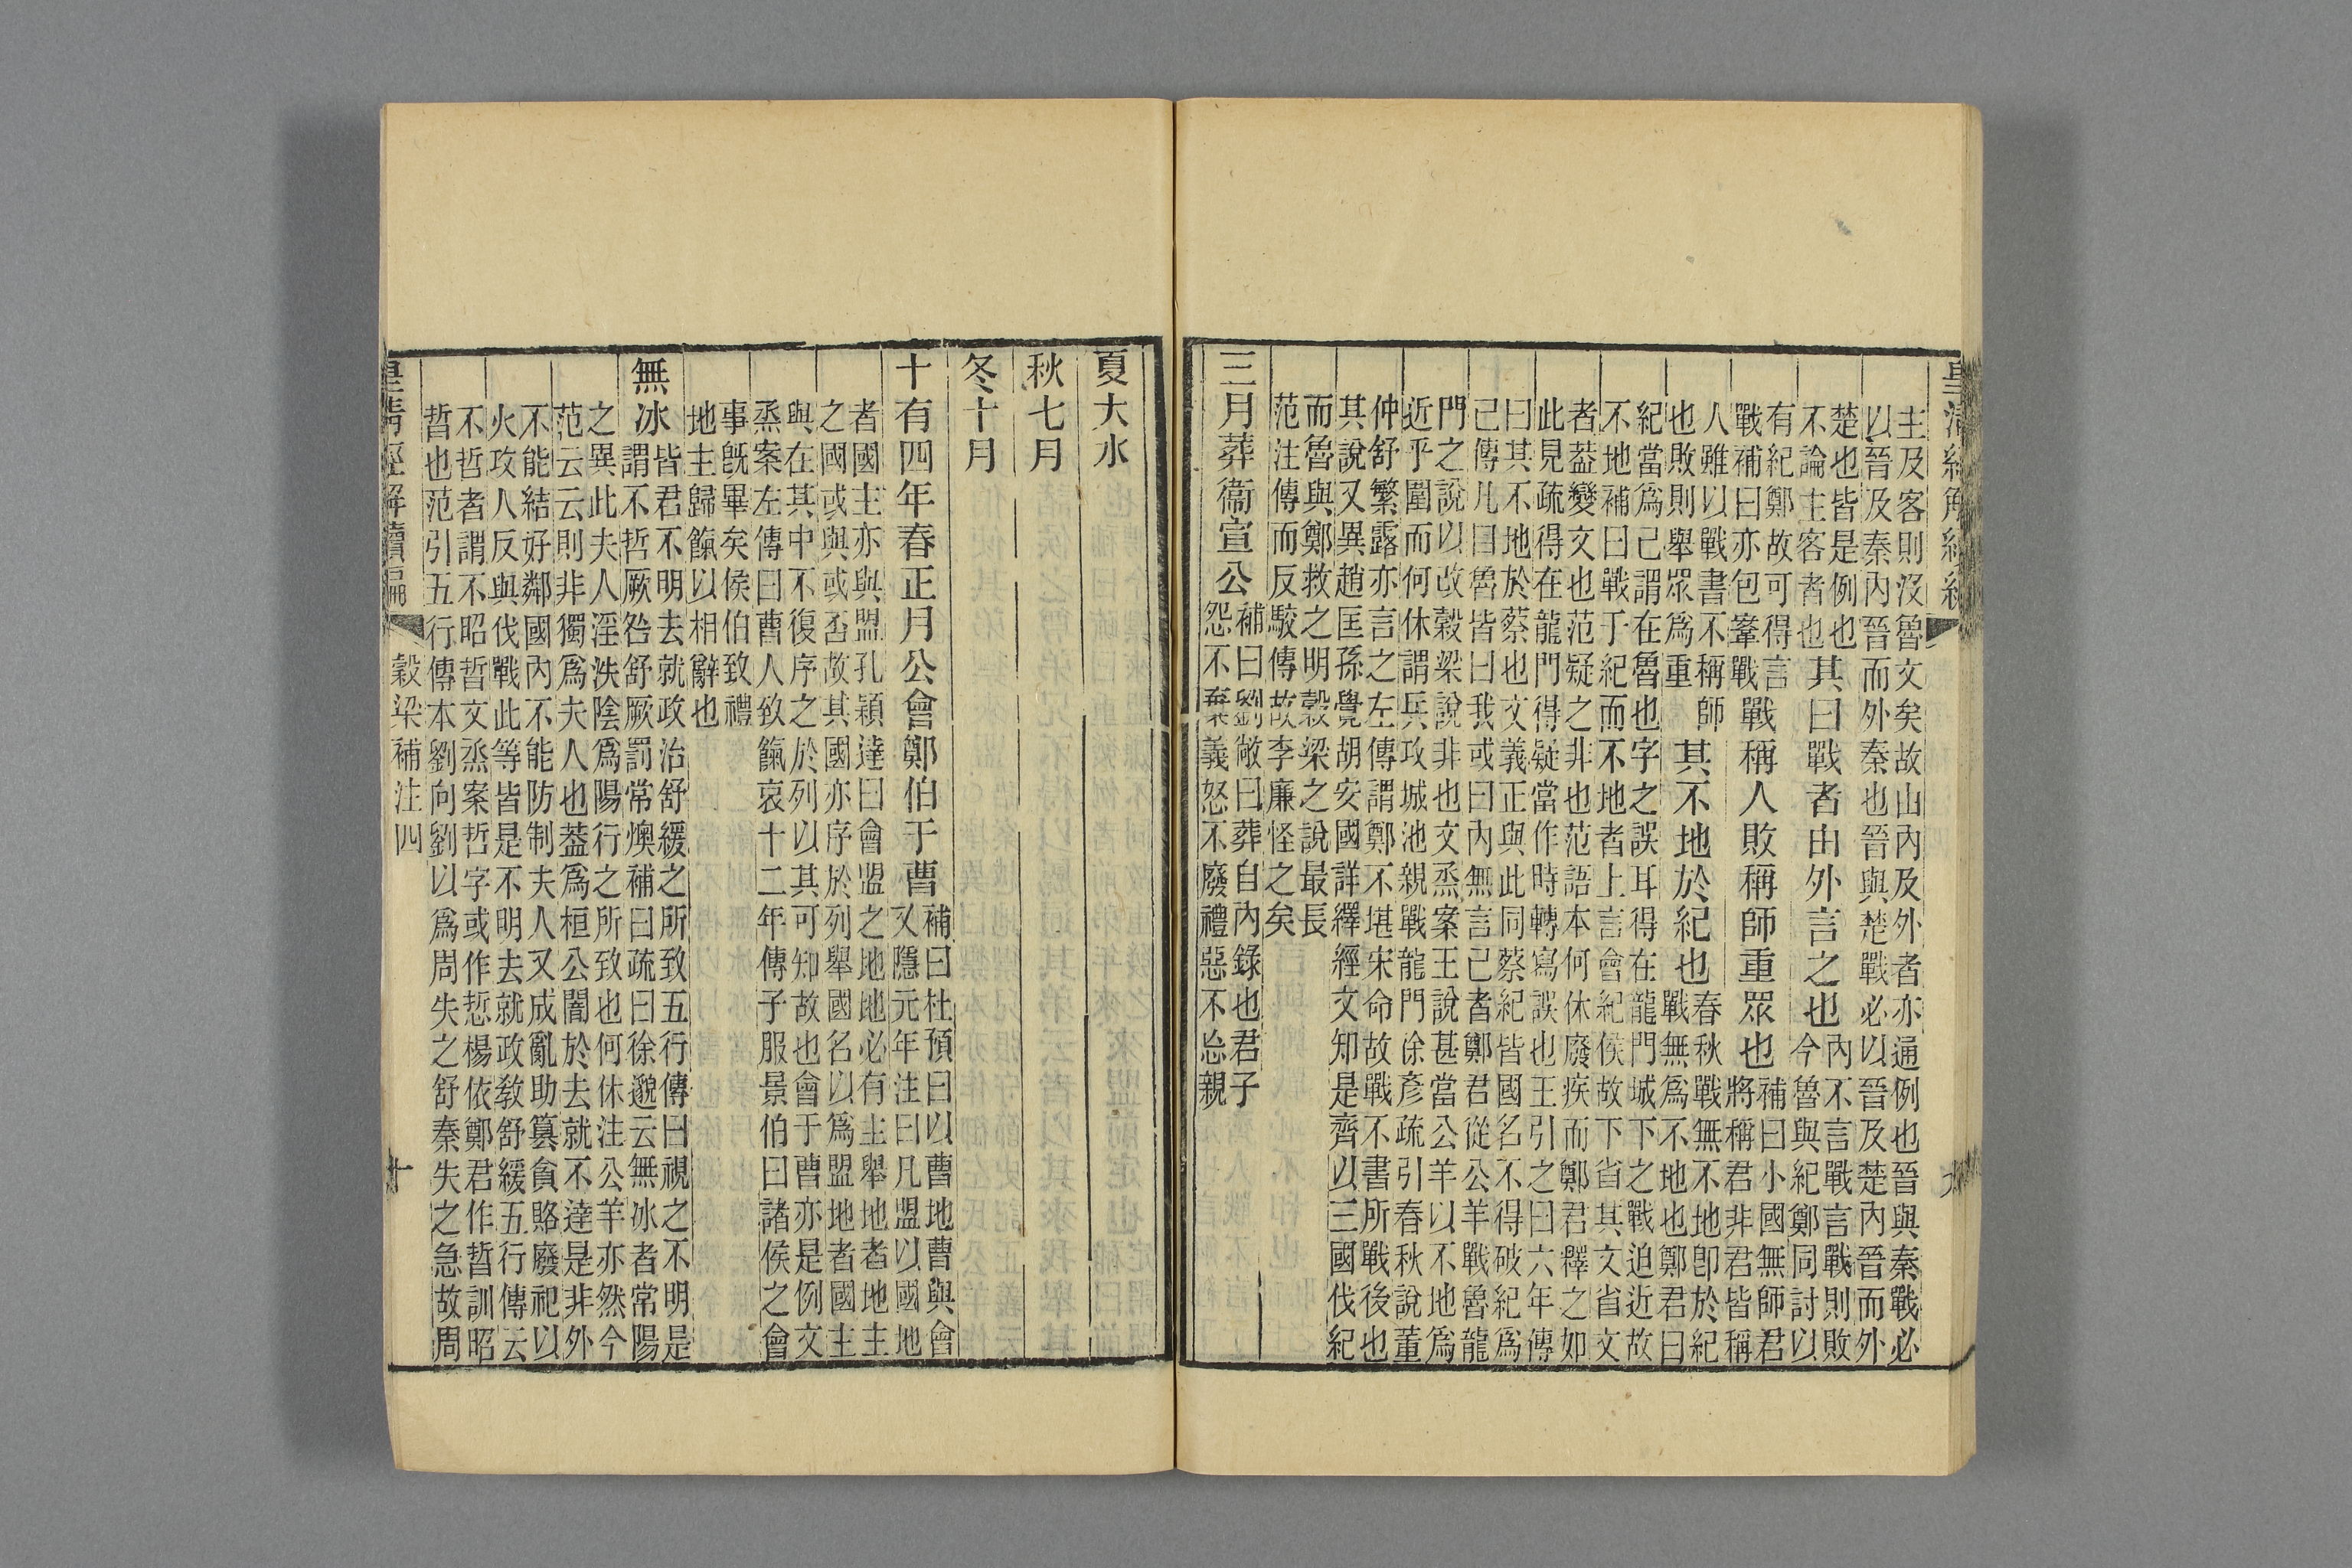 主及客則沒魯文矣故山內及外者亦通例也晉與秦戰必
以晉及秦內晉而外秦也晉與楚戰必以晉及楚內晉而外
楚也皆是例也
不論主客者也
其曰戰者由外言之也
內不言戰言戰則敗
今魯與紀鄭同討以
有紀鄭故可得言
戰補曰亦包鞌戰
戰稱人敗稱師重眾也
補曰小國無師君
將稱君非君皆稱
人雖以戰書不稱師
也敗則舉眾爲重
其不地於紀也
春秋戰無不地卽於紀
戰無爲不地也鄭君曰
紀當爲己謂在魯也字之誤耳得在龍門城下之戰迫近故
不地補曰戰于紀而不地者上言會紀侯故下省其文省文
者葢變文也范疑之非也范語本何休廢疾而鄭君釋之如
此見疏得在龍門得疑當作時轉寫誤也王引之曰六年傳
曰其不地於蔡也文義正與此同蔡紀皆國名不得破紀爲
己傳凡目魯皆曰我或曰內無言己者鄭君從公羊戰魯龍
門之說以改穀梁說非也文烝案王說甚當公羊以不地爲
近乎圍而何休謂兵攻城池親戰龍門徐彥疏引春秋說董
仲舒繁露亦言之左傳謂鄭不堪宋命故戰不書所戰後也
其說又異趙匡孫覺胡安國詳繹經文知是齊以三國伐紀
而魯與鄭救之明穀梁之說最長
范注傳而反駮傳故李廉怪之矣
三月葬衞宣公
補曰劉敞曰葬自內錄也君子
怨不棄義怒不廢禮惡不忘親
夏大水
秋七月
冬十月
十有四年春正月公會鄭伯于曹
補曰杜預曰以曹地曹與會
又隱元年注曰凡盟以國地
者國主亦與盟孔穎達曰會盟之地地必有主舉地者地主
之國或與或否故其國亦序於列舉國名以爲盟地者國主
與在其中不復序之於列以其可知故也會于曹亦是例文
烝案左傳曰曹人致餼哀十二年傳子服景伯曰諸侯之會
事旣畢矣侯伯致禮
地主歸餼以相辭也
無冰
皆君不明去就政治舒緩之所致五行傳曰視之不明是
謂不哲厥咎舒厥罰常燠補曰疏曰徐邈云無冰者常陽
之異此夫人淫泆陰爲陽行之所致也何休注公羊亦然今
范云云則非獨爲夫人也葢爲桓公闇於去就不達是非外
不能結好鄰國內不能防制夫人又成亂助篡貪賂廢祀以
火攻人反與伐戰此等皆是不明去就政教舒緩五行傳云
不哲者謂不昭哲文烝案哲字或作悊楊依鄭君作晢訓昭
晢也范引五行傳本劉向劉以爲周失之舒秦失之急故周
皇清經解續編
穀梁補注四
十